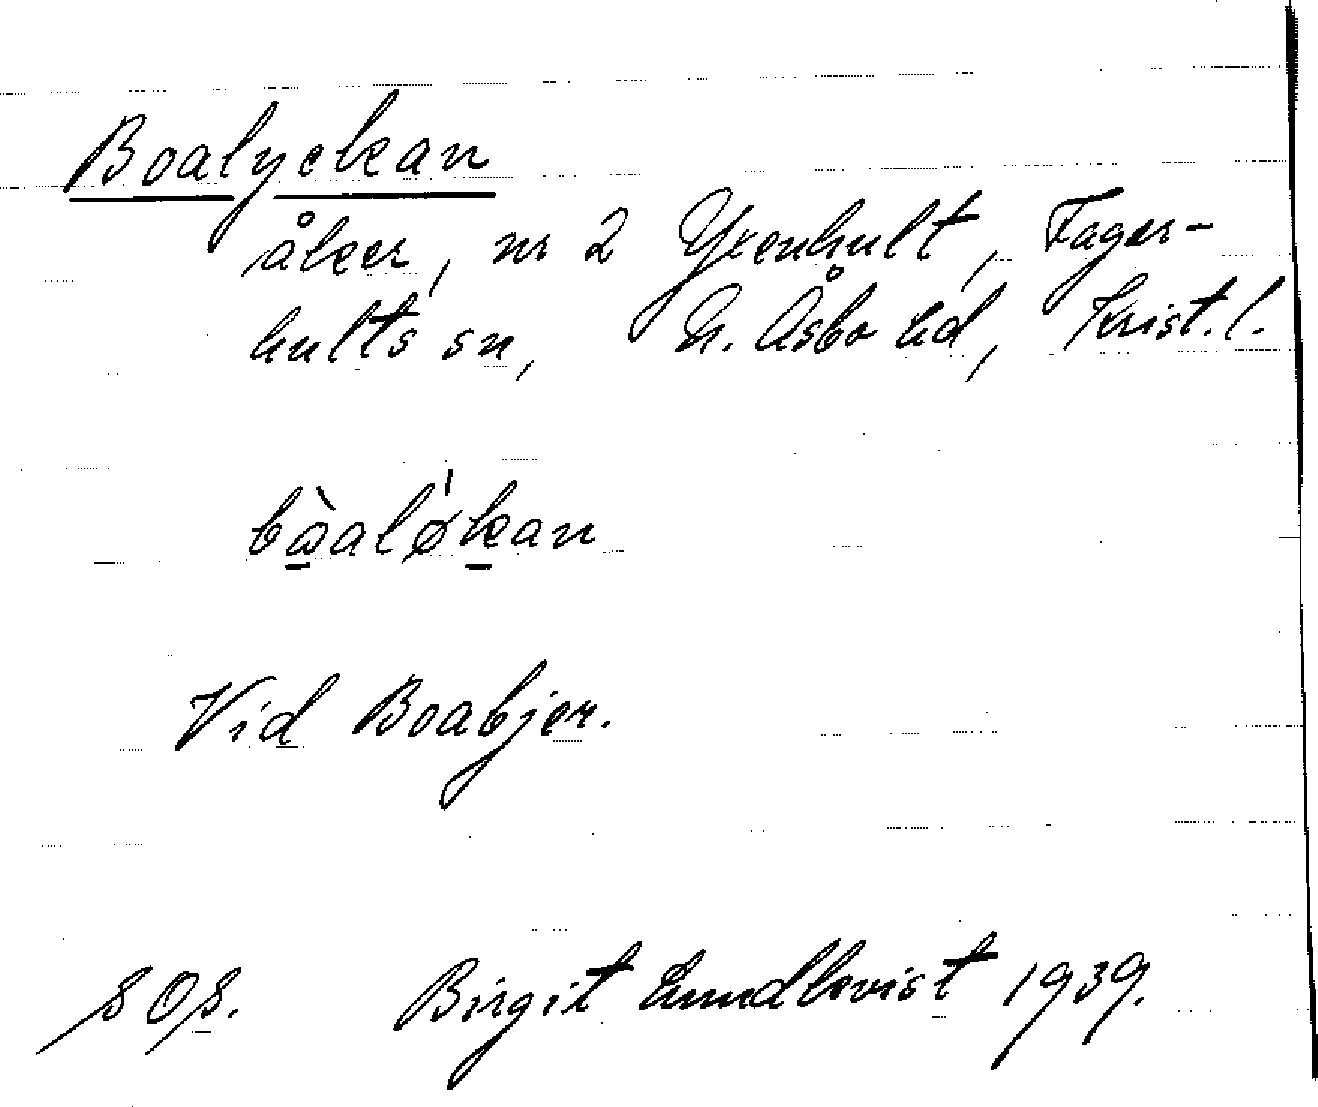 Boalyckan
åker, nr 2 Yxenhult, Fager-
hults sn, N. Åsbo hd, Krist. l.
bὼalø̍kan
Vid Boabjer.
SOS. Birgit Lundkvist 1939.